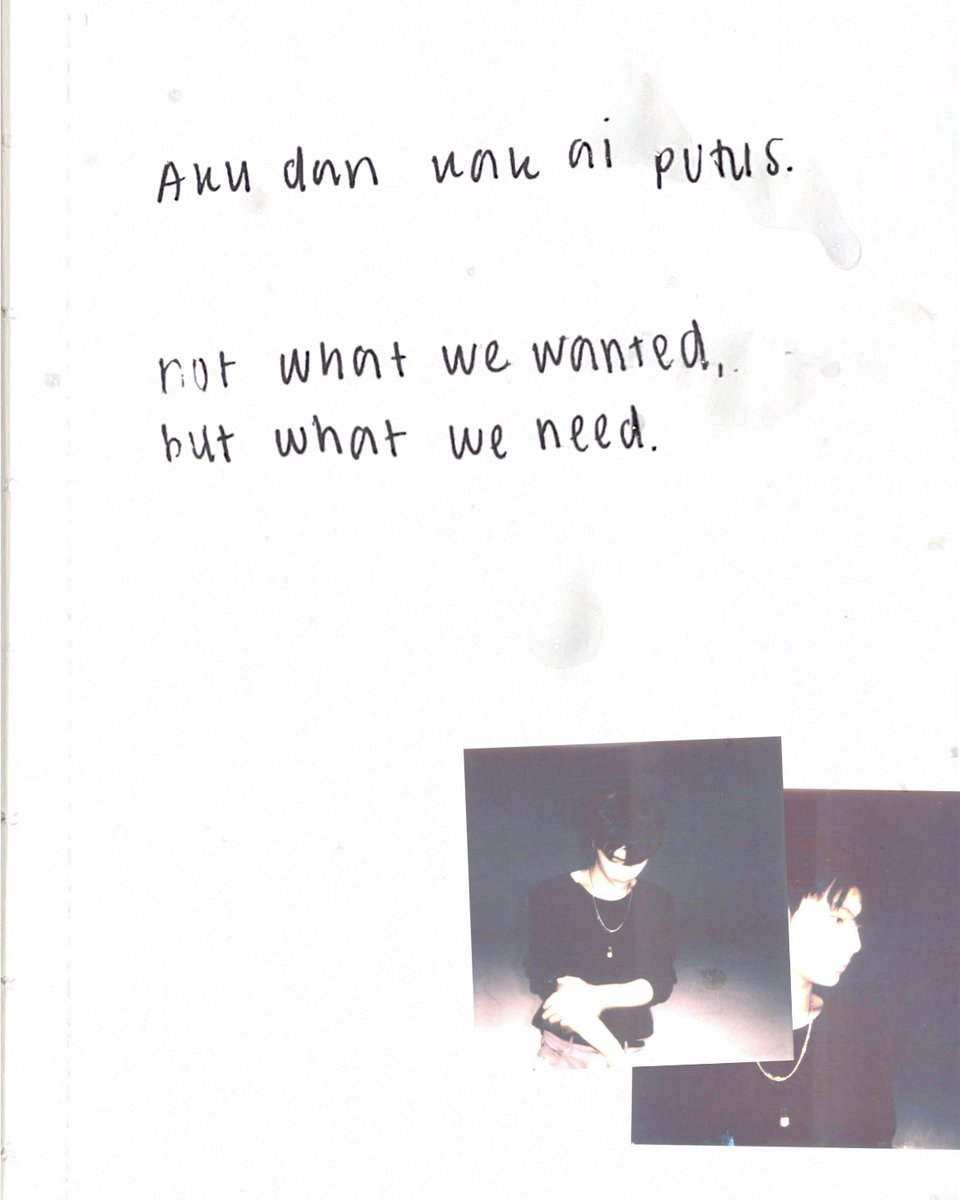 Aku dan kak ai putus.
not what we wanted,
but what we need.